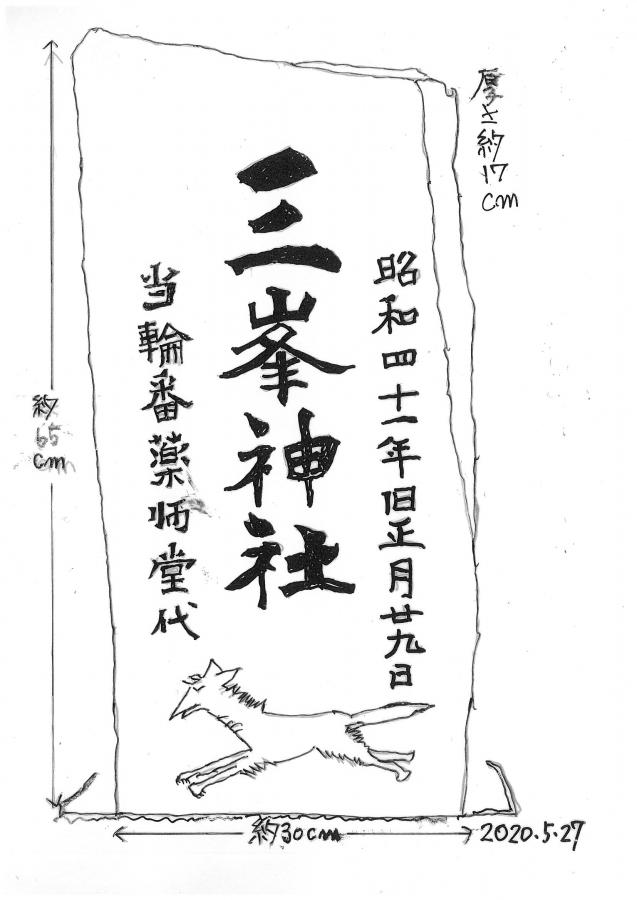 厚さ約17cm
昭和四十一年旧正月廿九日
三峯神社
当輪番薬师堂代
約65cm
約30cm
2020.5.27